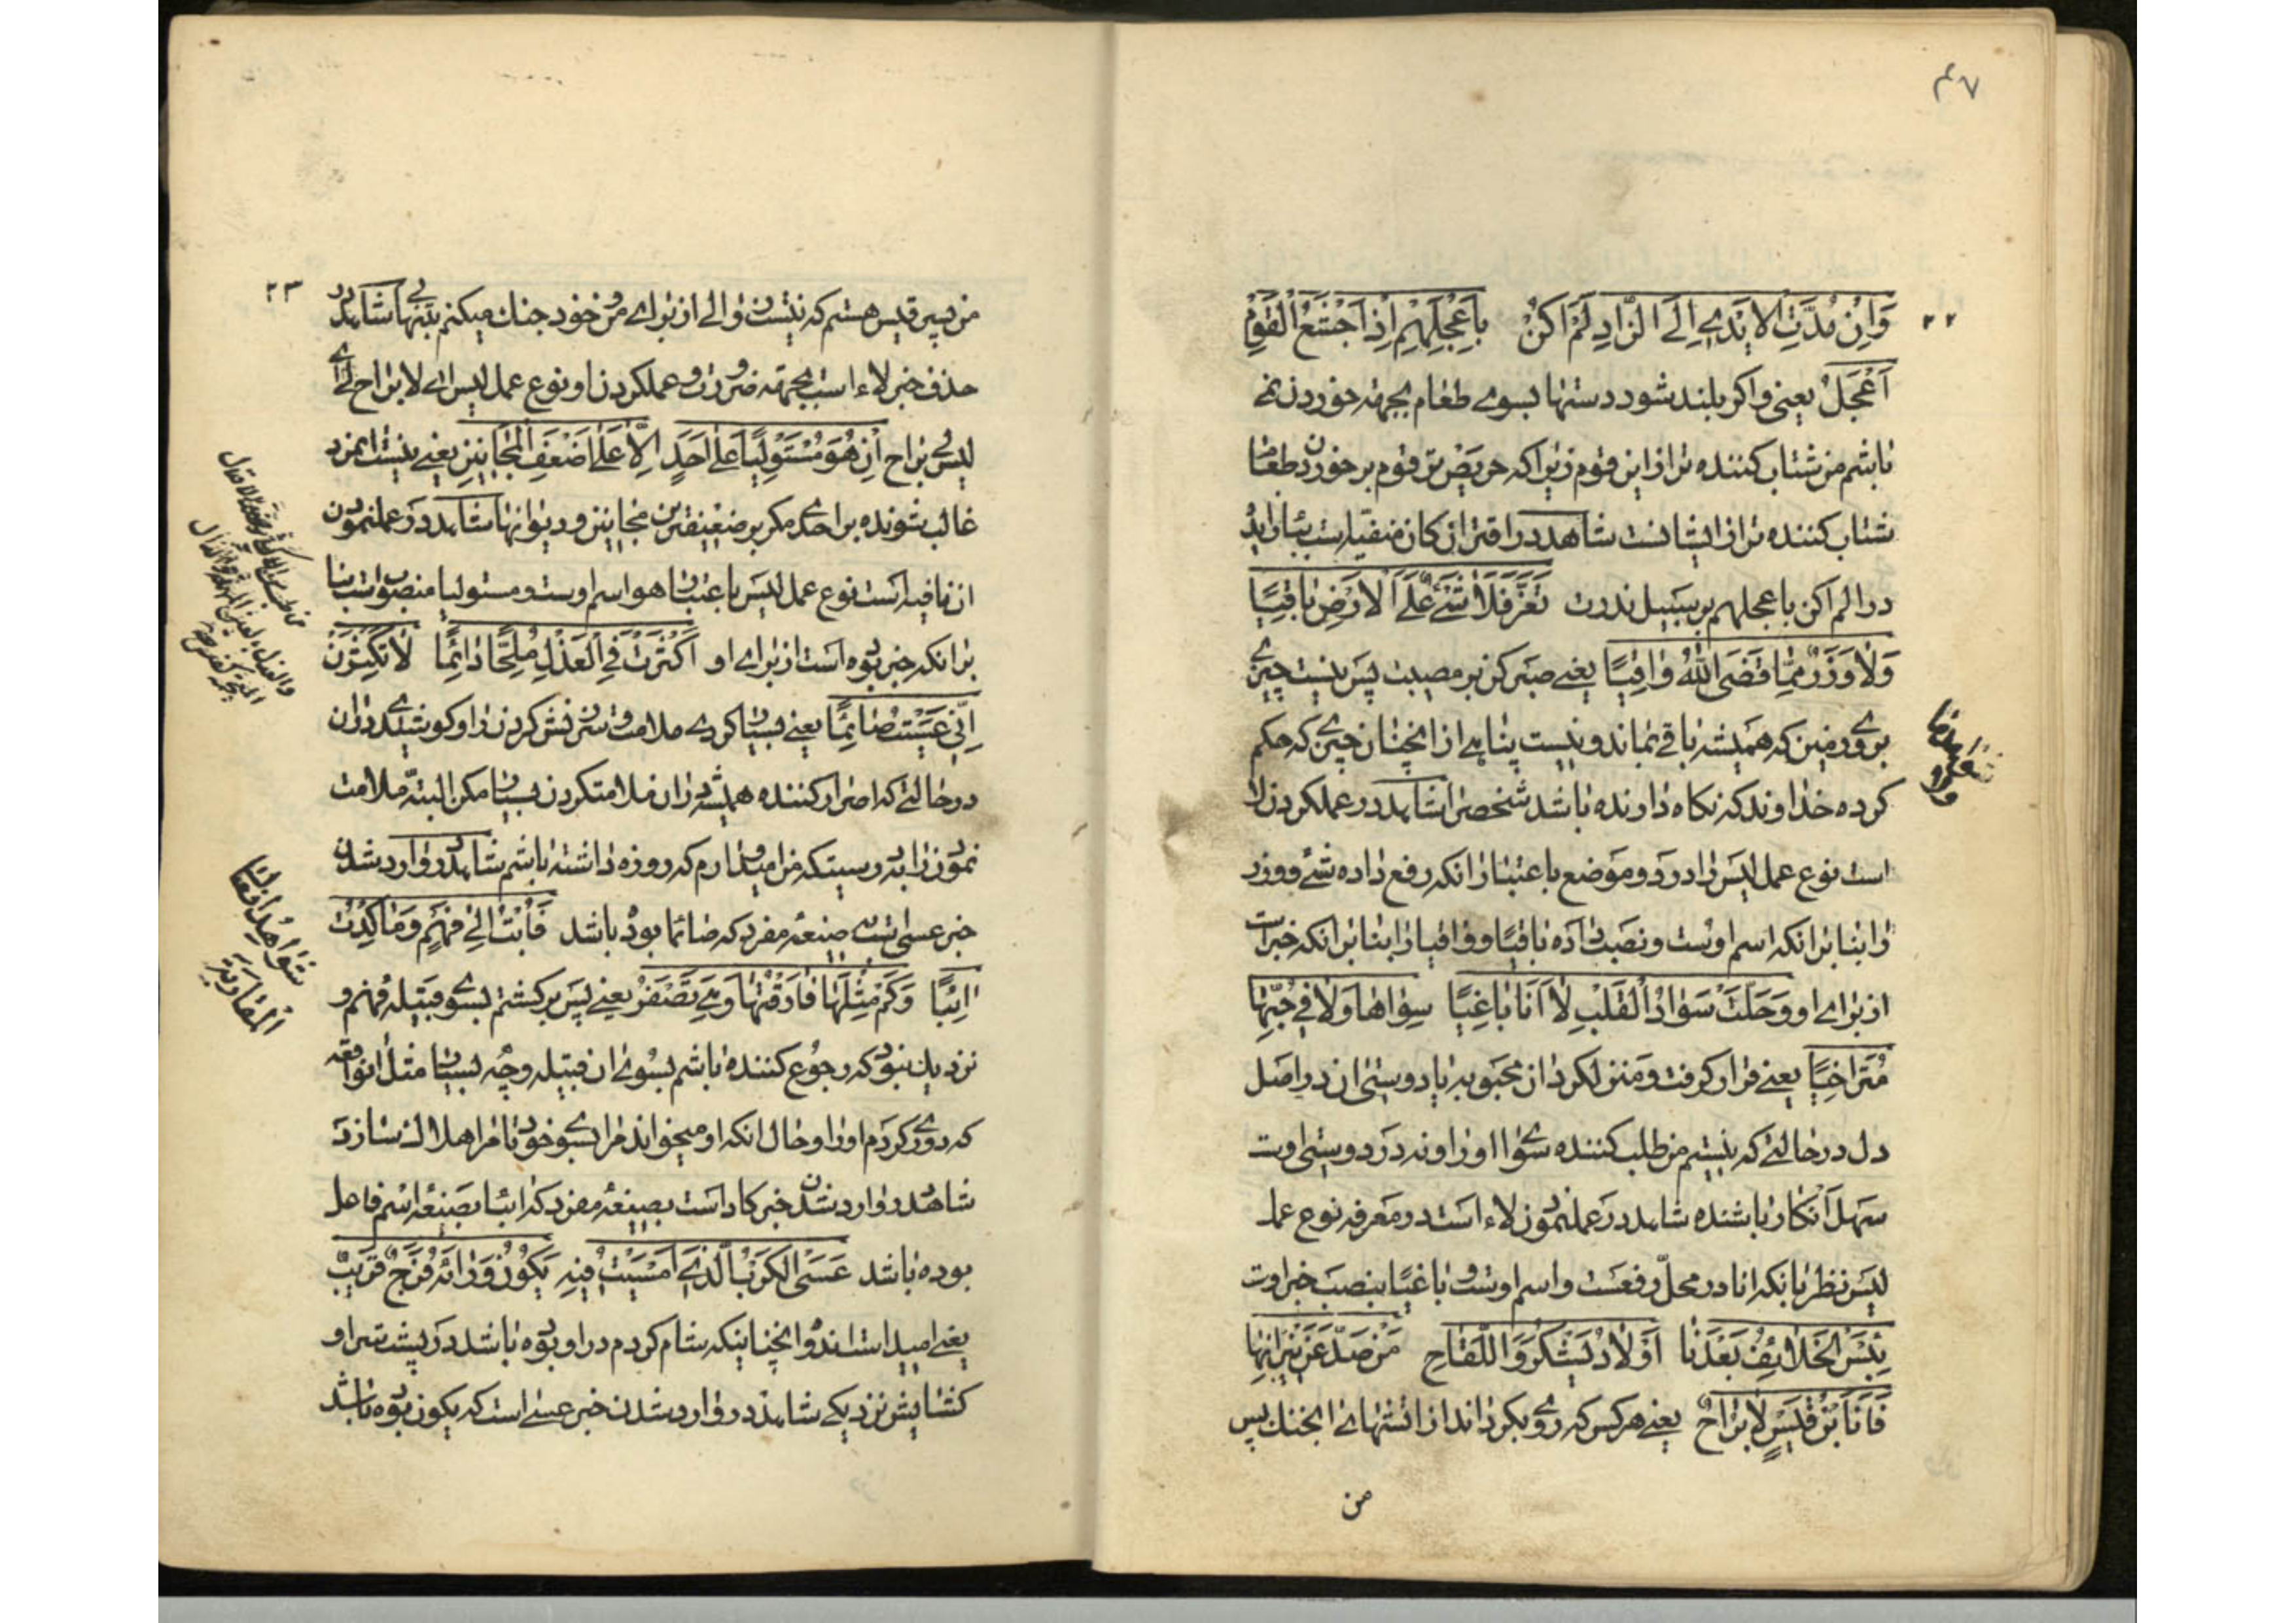 ۴۷
۲۲
وَاِنْ مُدَّتِ الاَیْدی اِلَی الزّادِ لَمْ اَکُنْ بِاَعْجَلِهِمْ اِذْ اَجْشَعُ الْقَوْمِ
اَعْجَلُ یعنی واکر بلند شود دستها بسوی طعام بجهته خوردن نمی
باشم من شتاب کننده تر از این قوم زیرا که حریص ترین قوم بر خوردن طعام
شتاب کننده تر از ایشانست شاهد در اقتران کان منفیه است ببا زایده
در الم اکن باعجلهم بر سبیل ندرت تَعَزَّ فَلا شَیْءٌ عَلَی الاَرْضِ باقِیًا
وَلا وَزَرٌ مِمّا قَضَی اللّهُ واقِیًا یعنی صبر کن بر مصیبت پس نیست چیزی
بر روی زمین که همیشه باقی بماند و نیست پناهی از انچنان چیزی که حکم
کرده خداوند که نکاه دارنده باشد شخص را شاهد در عملکردن لا
است نوع عمل لیس را در دو موضع باعتبار انکه رفع داده شیء و وزر
را بنا بر انکه اسم اوست و نصب داده باقیا و واقیا را بنا بر انکه خبر است
از برای او وَحَلَّتْ سَوادَ الْقَلْبِ لا اَنَا باغِیًا سِواها وَلا فی حُبِّها
مُتَراخِیًا یعنی قرار کرفت و منزل کرد ان محبوبه یا دوستی ان در اصل
دل در حالتی که نیستم من طلب کننده سوای او را و نه در دوستی اوت
سهل انکار باشنده شاهد در عملنمودن لاء است در معرفه نوع عمل
لیس نظر بانکه انا در محل رفعست و اسم اوست و باغیًا بنصب خبر اوت
بِئْسَ الْخَلائِفُ بَعْدَنا اَوْلادُ یَشْکُرَ وَاللِّقاحِ مَنْ صَدَّ عَنْ نیرانِها
فَاَنَا بْنُ قَیْسٍ لا بَراحُ یعنی هر کس که روی بکرداند از اتشهای انجنك پس
من
۲۳
من پسر قیس هستم که نیست زوالی از برای من و خود جنك میکنم بتنهایی شاهد در
حذف خبر لاء است بجهته ضرورت و عملکردن او نوع عمل لیس ای لا براح لی ای
لیس لی براح اِنْ هُوَ مُسْتَوْلِیًا عَلی اَحَدٍ اِلّا عَلی اَضْعَفِ الْمَجانینِ یعنی نیست انمرد
غالب شونده بر احدی مکر بر ضعیفترین مجانین و دیوانها شاهد در عملنمودن
ان نافیه است نوع عمل لیس باعتبار هو اسم اوست و مستولیا منصوبست بنا
بر انکه خبر بوده است از برای او اَکْثَرْتَ فِی الْعَذْلِ مُلِحًّا دائِمًا لا تُکْثِرَنْ
اِنّی عَسَیْتُ صائِمًا یعنی بسیار کردی ملامت و سرزنش کردن را و کوشیدی در ان
در حالتی که اصرار کننده همیشه در ان ملامتکردن بسیار مکن البته ملامت
نمودن را بدرستیکه من امیدوارم که روزه داشته باشم شاهد در وارد شدن
خبر عسی است بصیغه مفرد که صائما بوده باشد فَاُبْتُ اِلی فَهْمٍ وَما کِدْتُ
اائِبًا وَکَمْ مِثْلِها فارَقْتُها وَهِیَ تَصْفِرُ یعنی پس بر کشتم بسوی قبیله فهم و
نزدیك نبود که رجوع کننده باشم بسوی ان قبیله و چه بسیار مثل انواقعه
که دوری کردم او را و حال انکه او میخواند مرا بسوی خود تا مرا هلاك سازد
شاهد در وارد شدن خبر کاد است بصیغه مفرد که ائبا بصیغه اسم فاعل
بوده باشد عَسَی الْکَرْبُ الَّذی اَمْسَیْتُ فیهِ یَکُونُ وَرائَهُ فَرَجٌ قَریبٌ
یعنی امید است اندوه انچنانیکه شام کردم در او بوده باشد در پشت سر او
کشایش نزدیکی شاهد در وارد شدن خبر عسی است که یکون بوده باشد
شَواهِدُ اَفْعالِ
الْمُقارَبَة